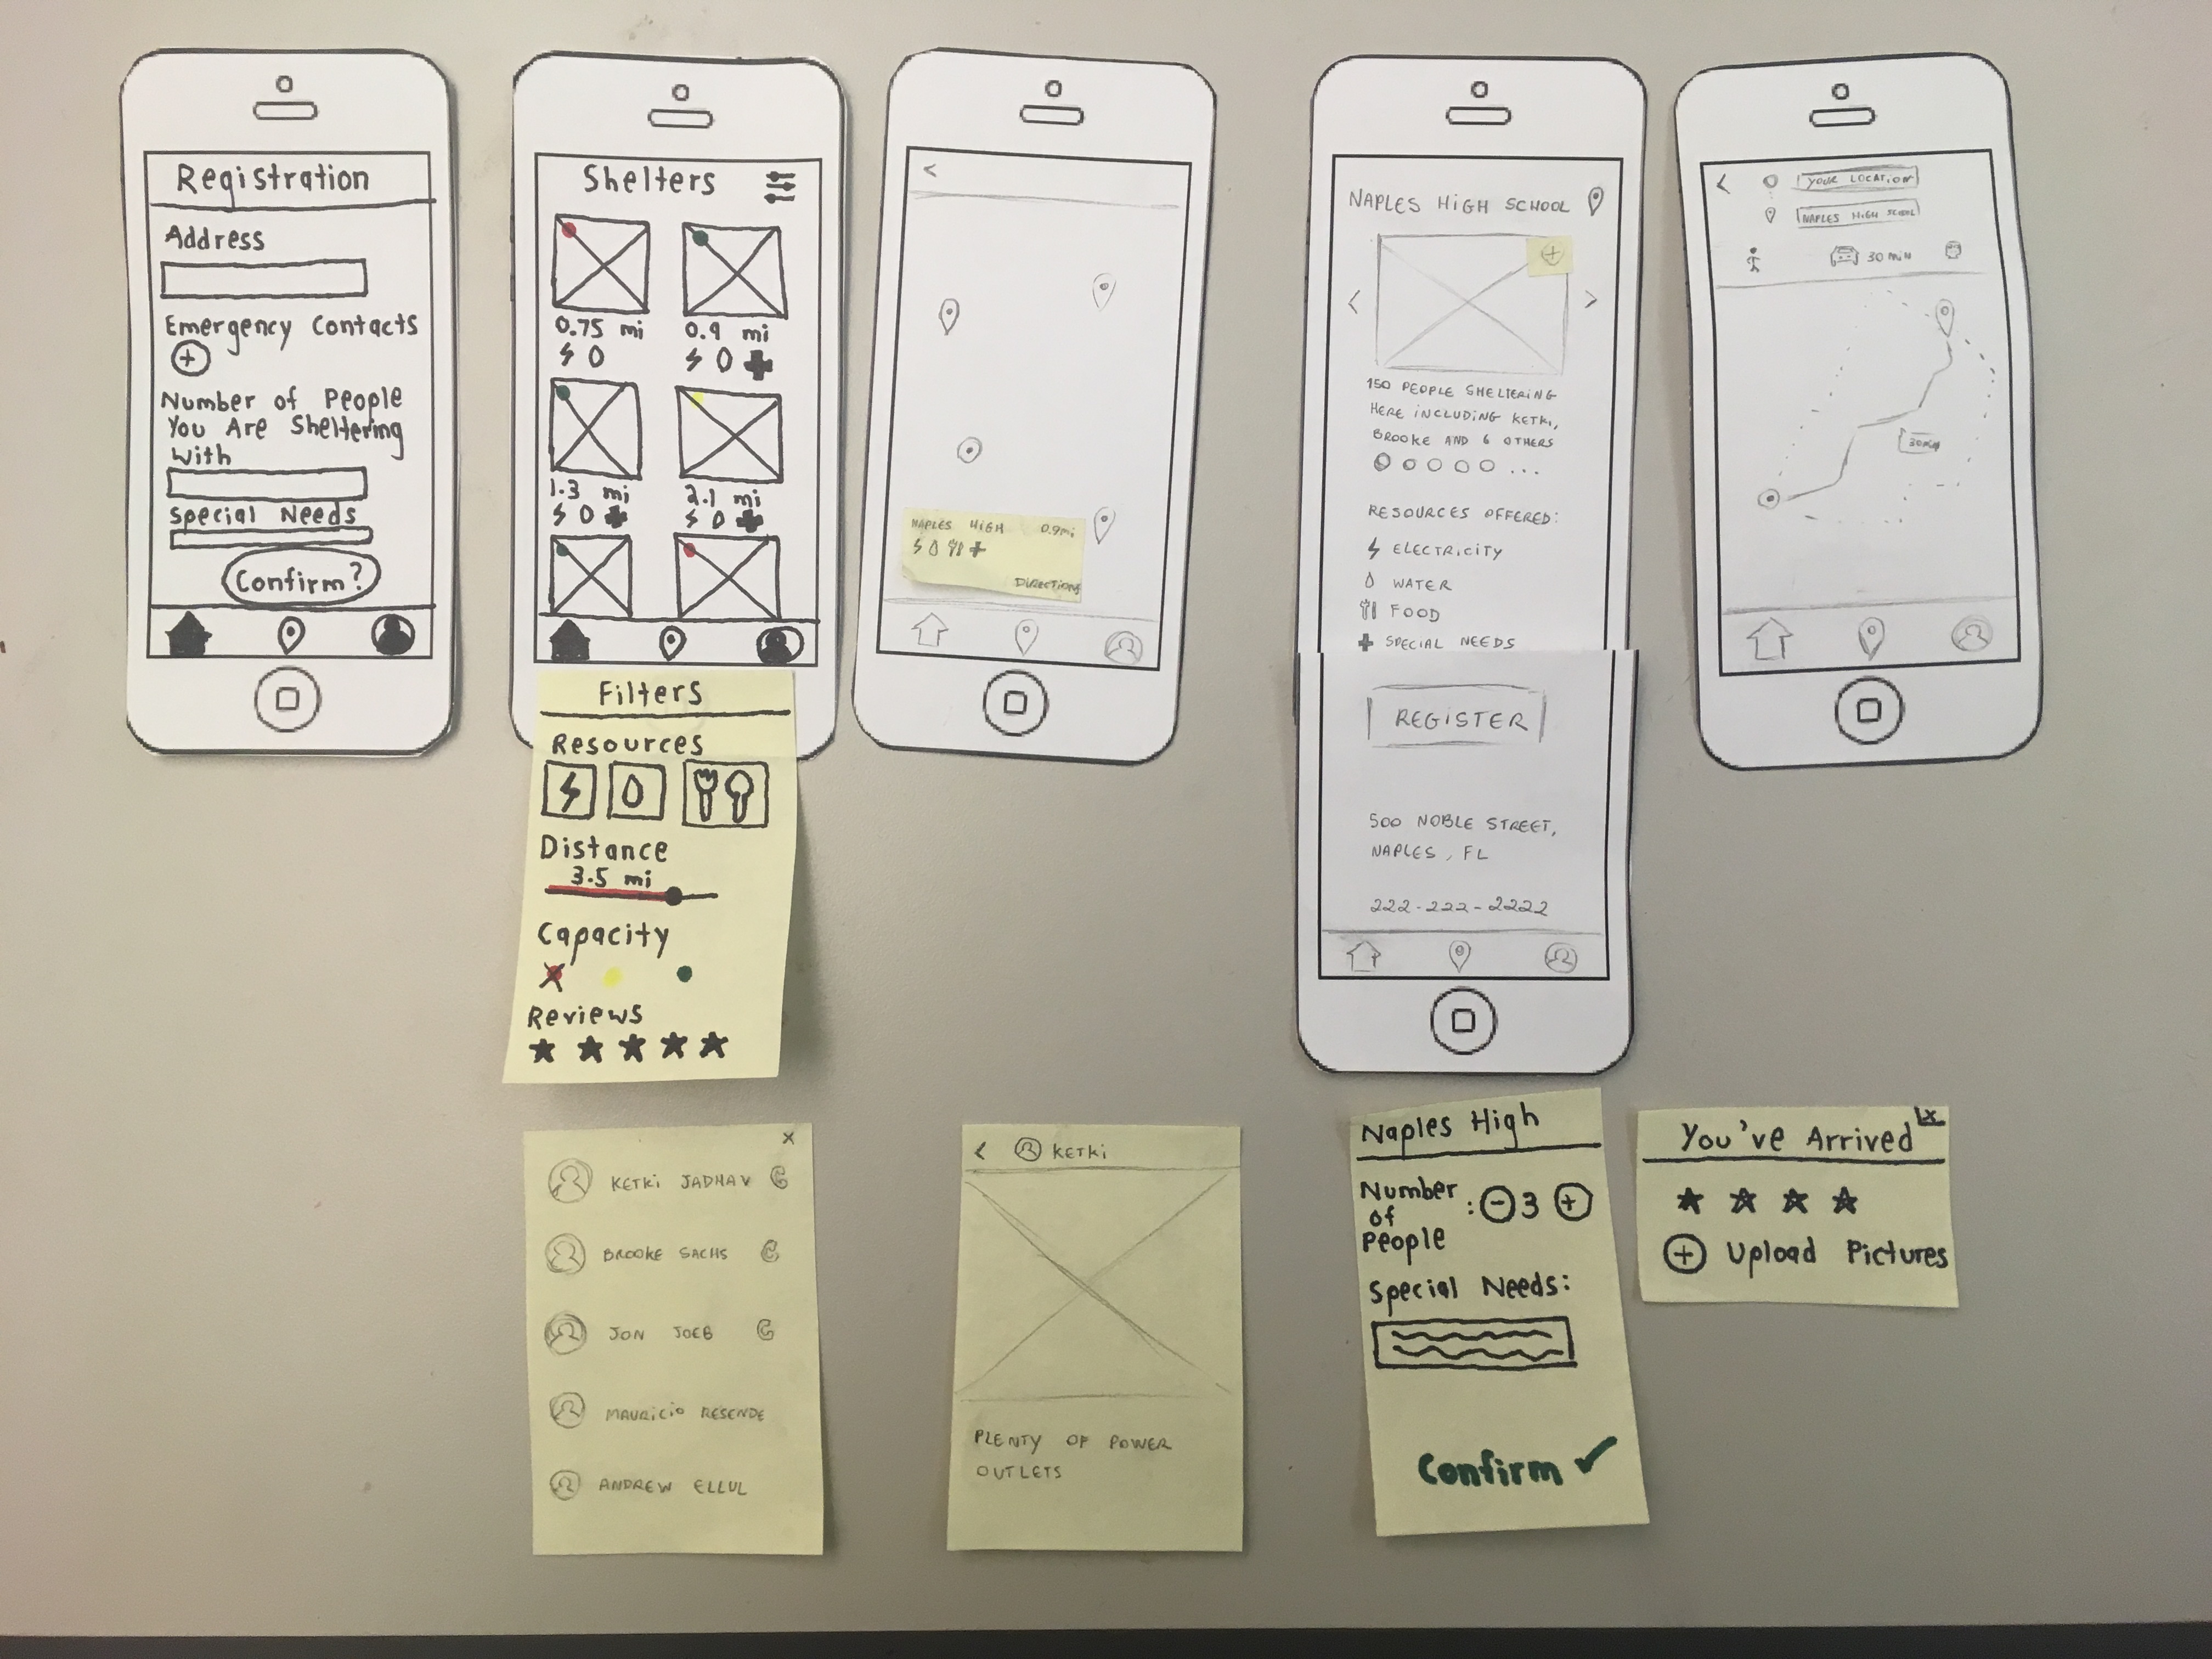 Registration
Address
Emergency Contacts
Number of People
You Are Sheltering
With
Special Needs
Confirm?
Shelters
0.75 mi
0.9 mi
1.3 mi
2.1 mi
Filters
Resources
Distance
3.5 mi
Capacity
Reviews
NAPLES HIGH 0.9mi
DIRECTIONS
NAPLES HIGH SCHOOL
150 PEOPLE SHELTERING
HERE INCLUDING KETKI,
BROOKE AND 6 OTHERS
...
RESOURCES OFFERED:
ELECTRICITY
WATER
FOOD
SPECIAL NEEDS
REGISTER
500 NOBLE STREET,
NAPLES, FL
222-222-2222
YOUR LOCATION
NAPLES HIGH SCHOOL
30 MIN
30 MIN
KETKI JADHAV
BROOKE SACHS
JON JOEB
MAURICIO RESENDE
ANDREW ELLUL
KETKI
PLENTY OF POWER
OUTLETS
Naples High
Number
of
People
: - 3 +
Special Needs:
Confirm ✓
You've Arrived
Upload Pictures